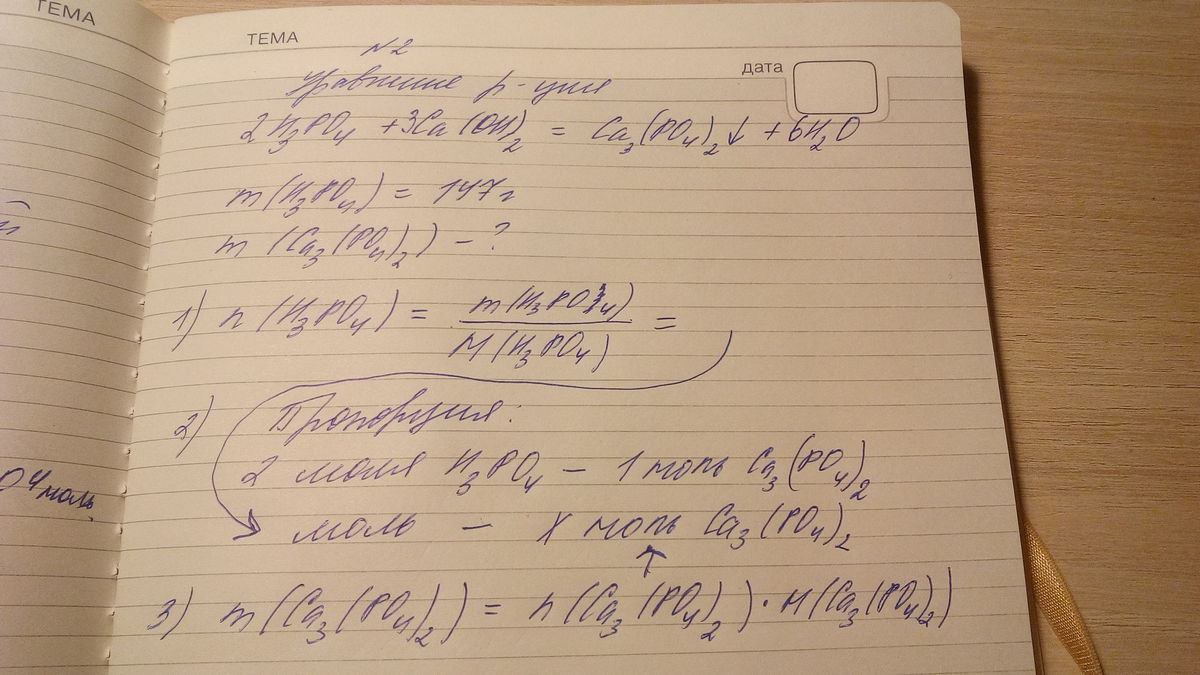 ТЕМА
ТЕМА
дата
N2
Уравнение р-ции
2H₃PO₄ + 3Ca(OH)₂ = Ca₃(PO₄)₂↓ + 6H₂O
m(H₃PO₄) = 147г
m(Ca₃(PO₄)₂) – ?
1) n(H₃PO₄) = m(H₃PO₄) / M(H₃PO₄) =
2) Пропорция:
2 моля H₃PO₄ – 1 моль Ca₃(PO₄)₂
моль – X моль Ca₃(PO₄)₂
↑
3) m(Ca₃(PO₄)₂) = n(Ca₃(PO₄)₂) · M(Ca₃(PO₄)₂)
моль